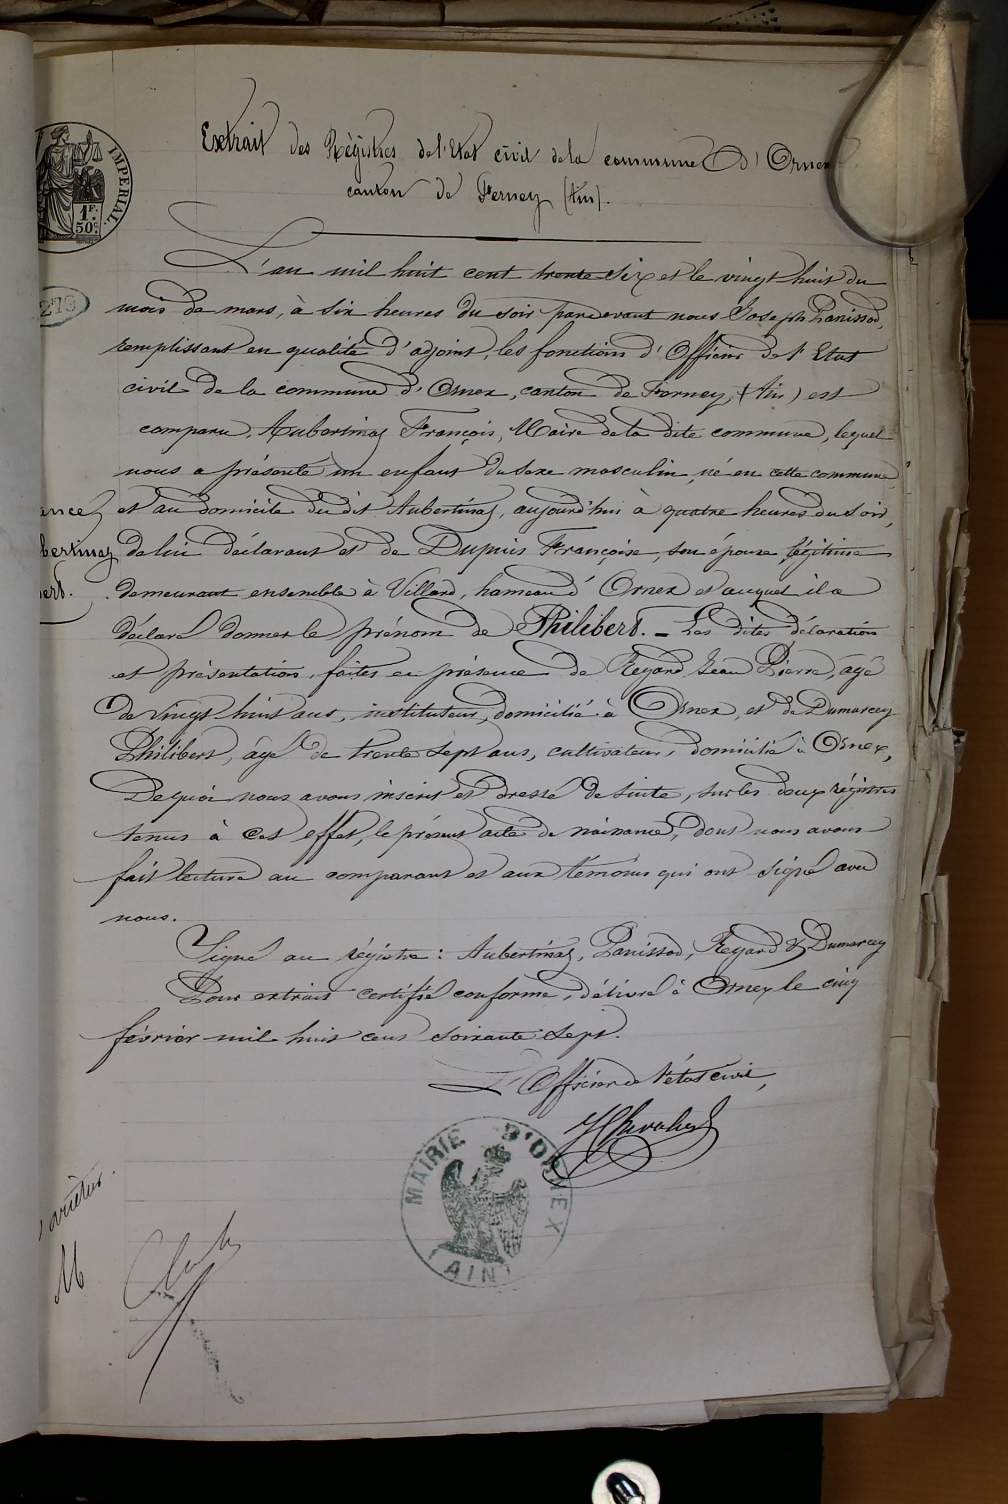 Extrait des Régistres de l'Etat civil de la commune d'Ornex
canton de Ferney (Ain).
IMPERIAL.
1F.
50c.
273
L'an mil huit cent trente six et le vingt huit du
mois de mars, à six heures du soir pardevant nous Joseph Panissod,
remplissant en qualité d'adjoint, les fonctions d'Officier de l'Etat
civil de la commune d'Ornex, canton de Ferney, (Ain) est
comparu, Aubertinaz François, Maire de la dite commune, lequel
nous a présenté un enfant du sexe masculin, né en cette commune
et au domicile du dit Aubertinaz, aujourd'hui à quatre heures du soir,
de lui déclarant et de Dupuis Françoise, son épouse légitime
demeurant ensemble à Villard, hameau d'Ornex et auquel il a
déclaré donner le prénom de Philibert. _ Les dites déclaration
et présentation, faites en présence de Regard Jean Pierre, âgé
de vingt huit ans, instituteur, domicilié à Ornex, et de Dumarcey
Philibert, âgé de trente sept ans, cultivateur, domicilié à Ornex,
De quoi nous avons inscrit et dressé de suite, sur les doux régistres
tenus à cet effet, le présent acte de naissance, dont nous avons
fait lecture au comparant et aux témoins qui ont signé avec
nous.
ance
bertinaz
bert.
Signé au régistre : Aubertinaz, Panissod, Regard & Dumarcey
Pour extrait certifié conforme, délivré à Ornex le cinq
février mil huit cent soixante sept.
L'Officier de l'état civil,
MAIRIE D'ORNEX
(AIN)